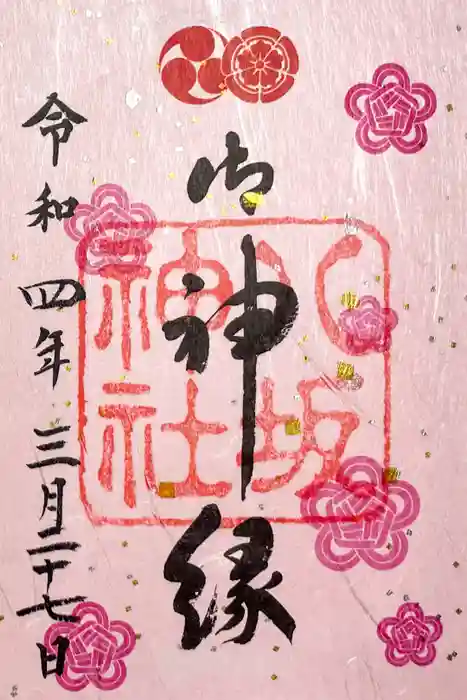 御神縁
八坂神社
令和四年三月二十七日